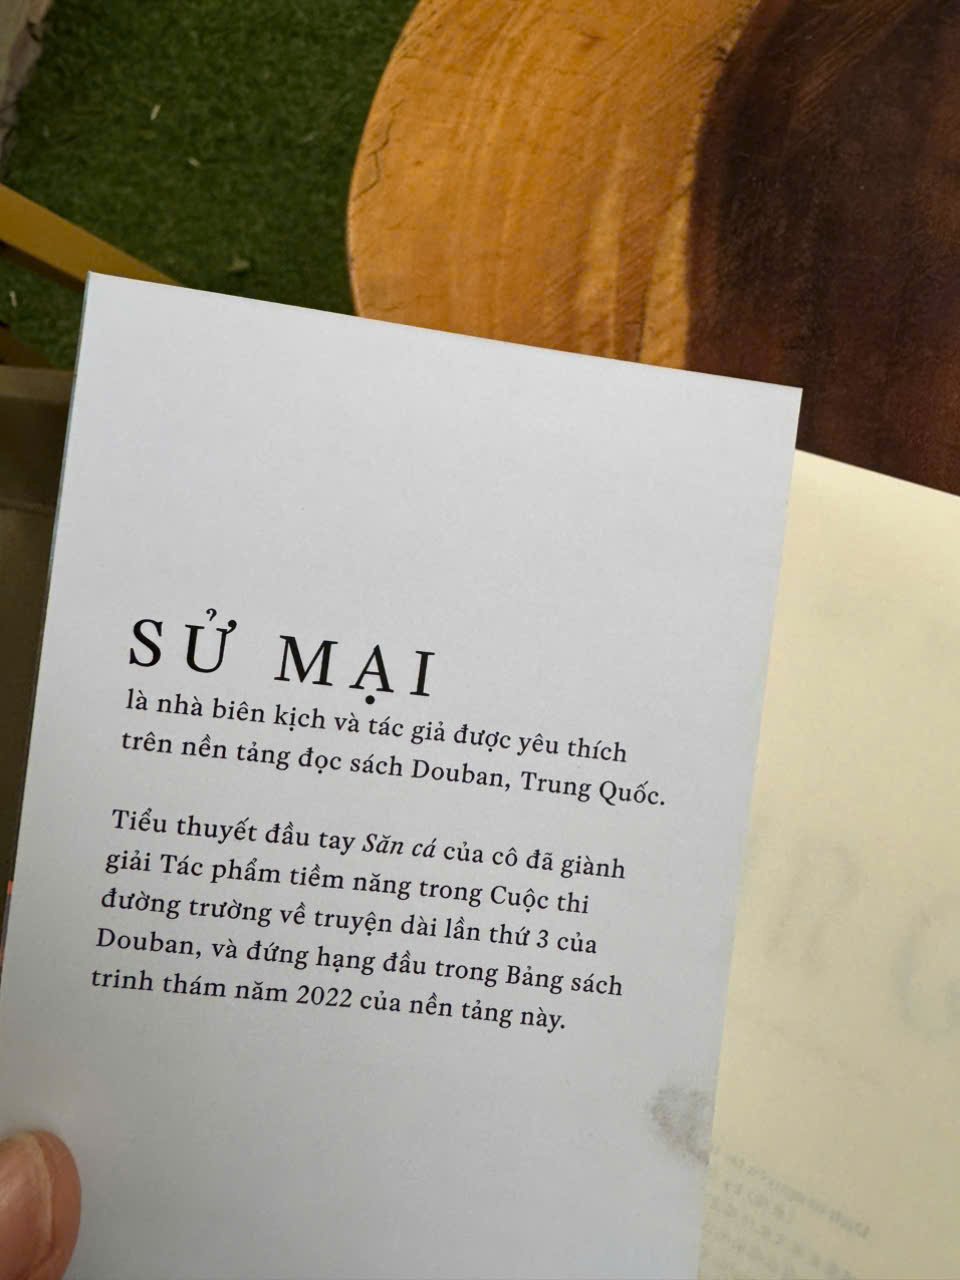 SỬ MẠI
là nhà biên kịch và tác giả được yêu thích
trên nền tảng đọc sách Douban, Trung Quốc.
Tiểu thuyết đầu tay Săn cá của cô đã giành
giải Tác phẩm tiềm năng trong Cuộc thi
đường trường về truyện dài lần thứ 3 của
Douban, và đứng hạng đầu trong Bảng sách
trinh thám năm 2022 của nền tảng này.